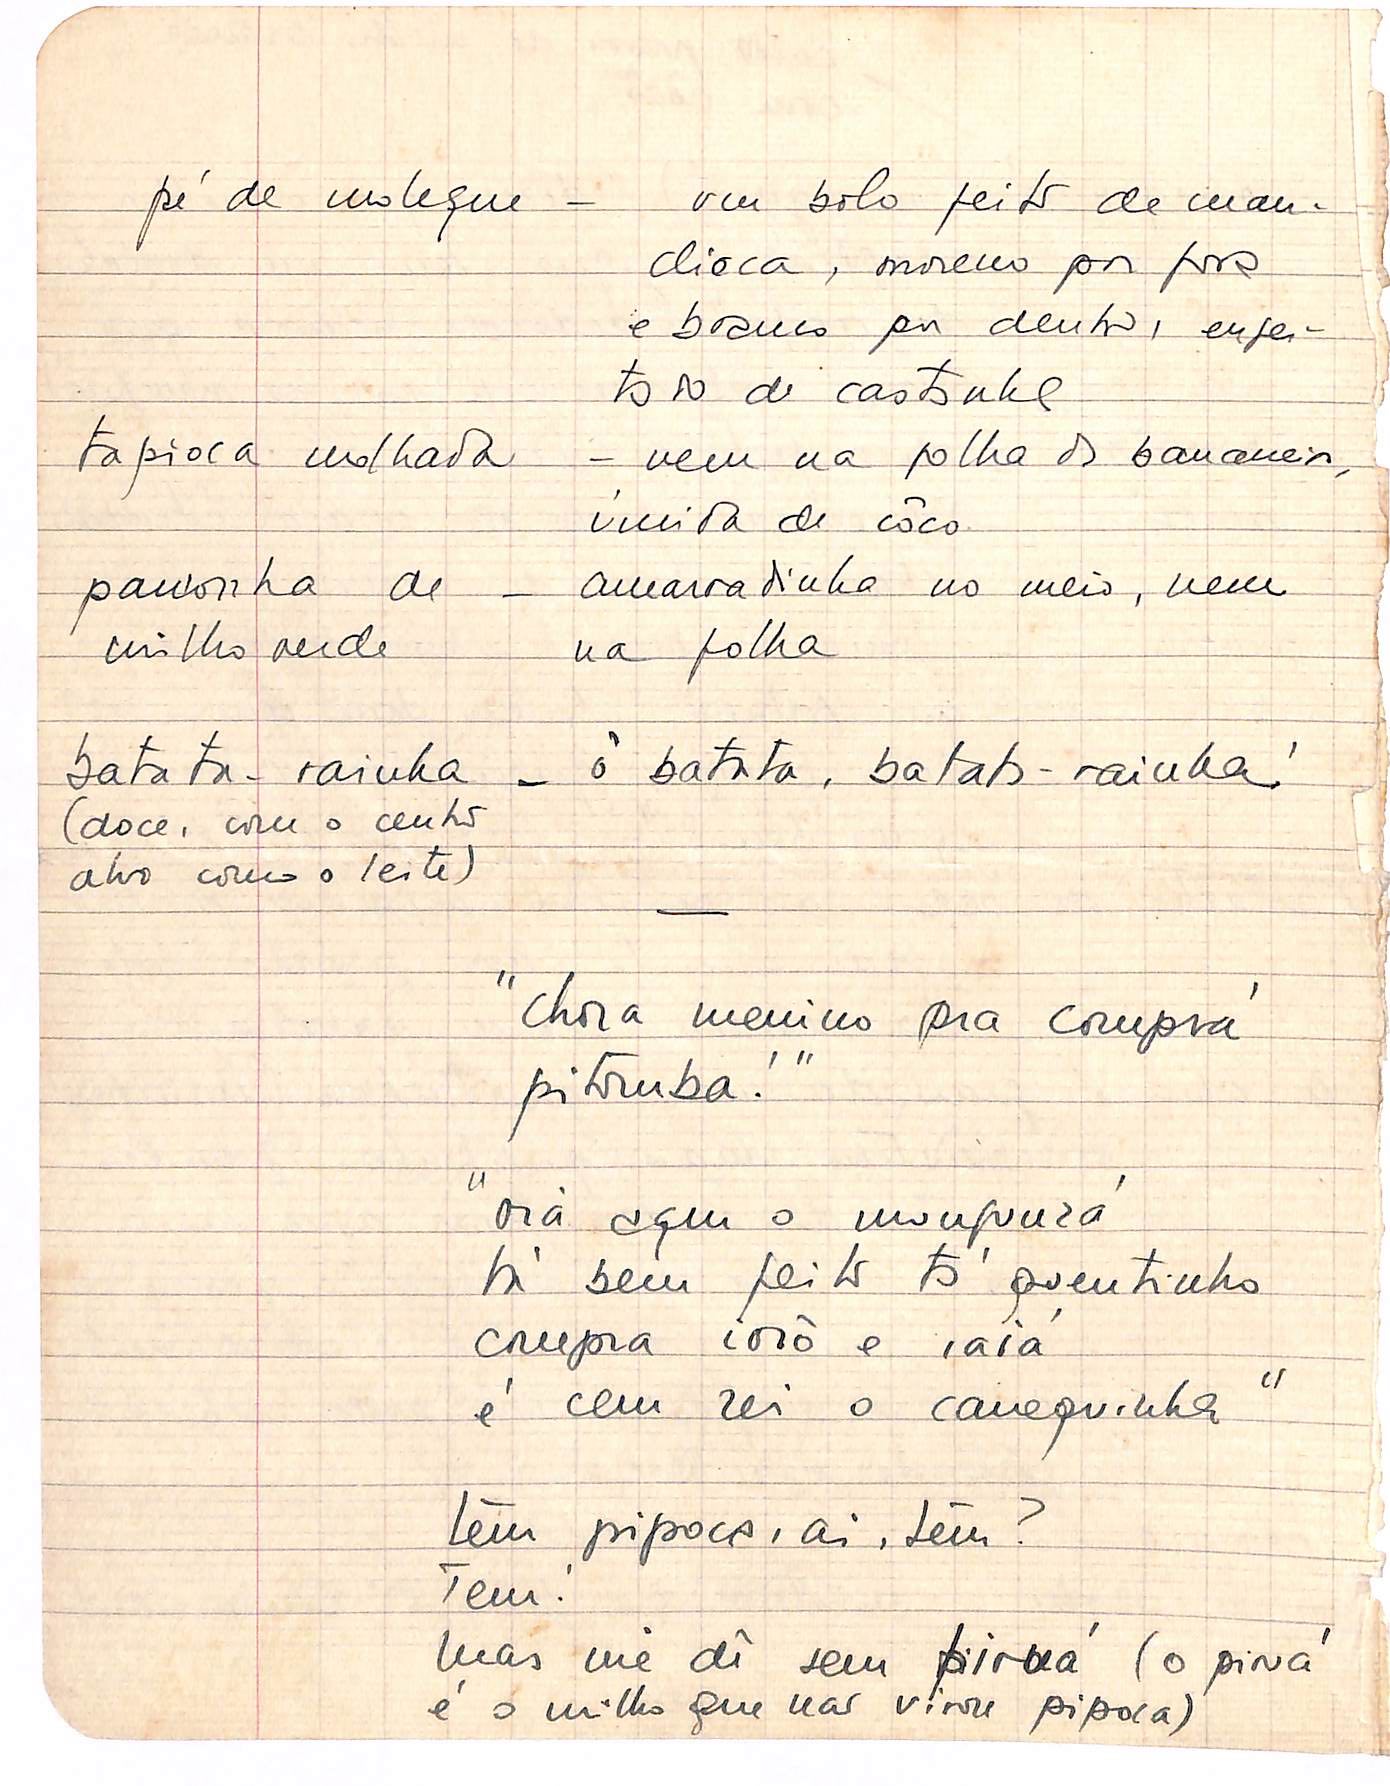 pé de moleque – um bolo feito de man-
dioca, moreno por fora
e branco por dentro, enfei-
tado de castanha
tapioca molhada – vem na folha da bananeira,
úmida de côco
pamonha de – amarradinha no meio, vem
milho verde na folha
batata-rainha – ô batata, batata-rainha!
(doce, com o centro
alvo como o leite)
—
"Chora menino pra comprá
pitomba!"
"oiá aqui o munguzá
tá bem feito tá quentinho
compra ioiô e iaiá
é cem rei o canequinha"
têm pipoca, aí, têm?
Tem!
mas me dê sem piruá (o piruá
é o milho que não virou pipoca)